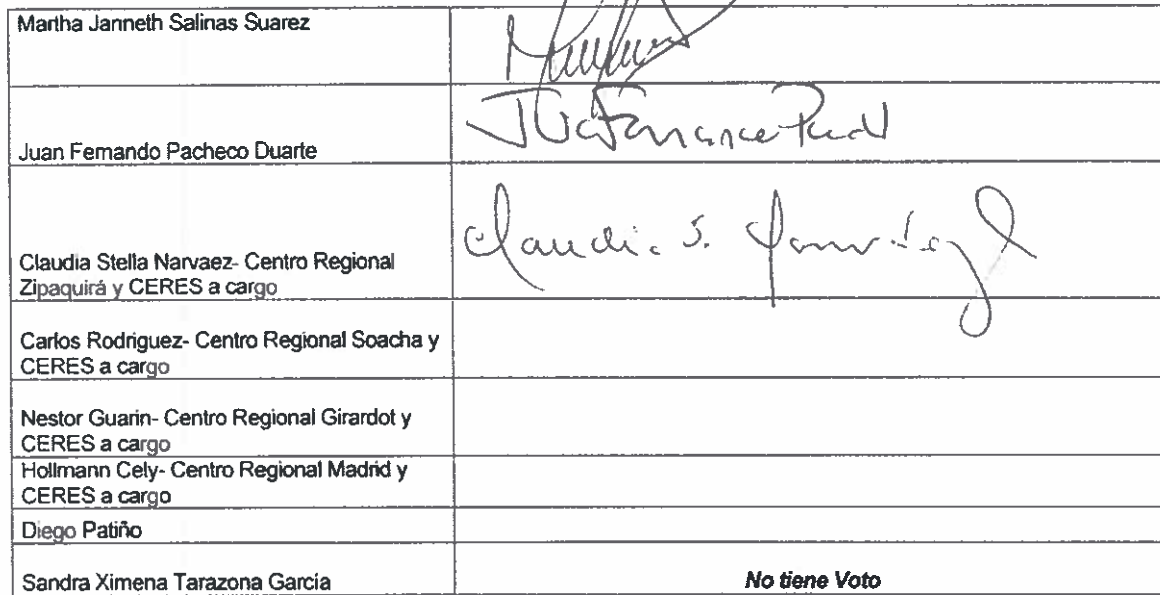 Martha Janneth Salinas Suarez
Juan Fernando Pacheco Duarte
Claudia S.
Claudia Stella Narvaez- Centro Regional
Zipaquirá y CERES a cargo
Carlos Rodriguez- Centro Regional Soacha y
CERES a cargo
Nestor Guarin- Centro Regional Girardot y
CERES a cargo
Hollmann Cely- Centro Regional Madrid y
CERES a cargo
Diego Patiño
Sandra Ximena Tarazona García
No tiene Voto